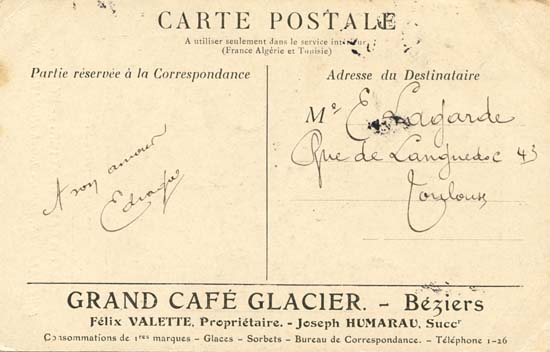 CARTE POSTALE
A utiliser seulement dans le service intérieur
(France Algérie et Tunisie)
Partie réservée à la Correspondance
Adresse du Destinataire
M e E Lagarde
Rue de Languedoc 43
Toulouse
A son amour
GRAND CAFÉ GLACIER. - Béziers
Félix VALETTE, Propriétaire. - Joseph HUMARAU, Succr
Consommations de 1res marques - Glaces - Sorbets - Bureau de Correspondance. - Téléphone 1-26